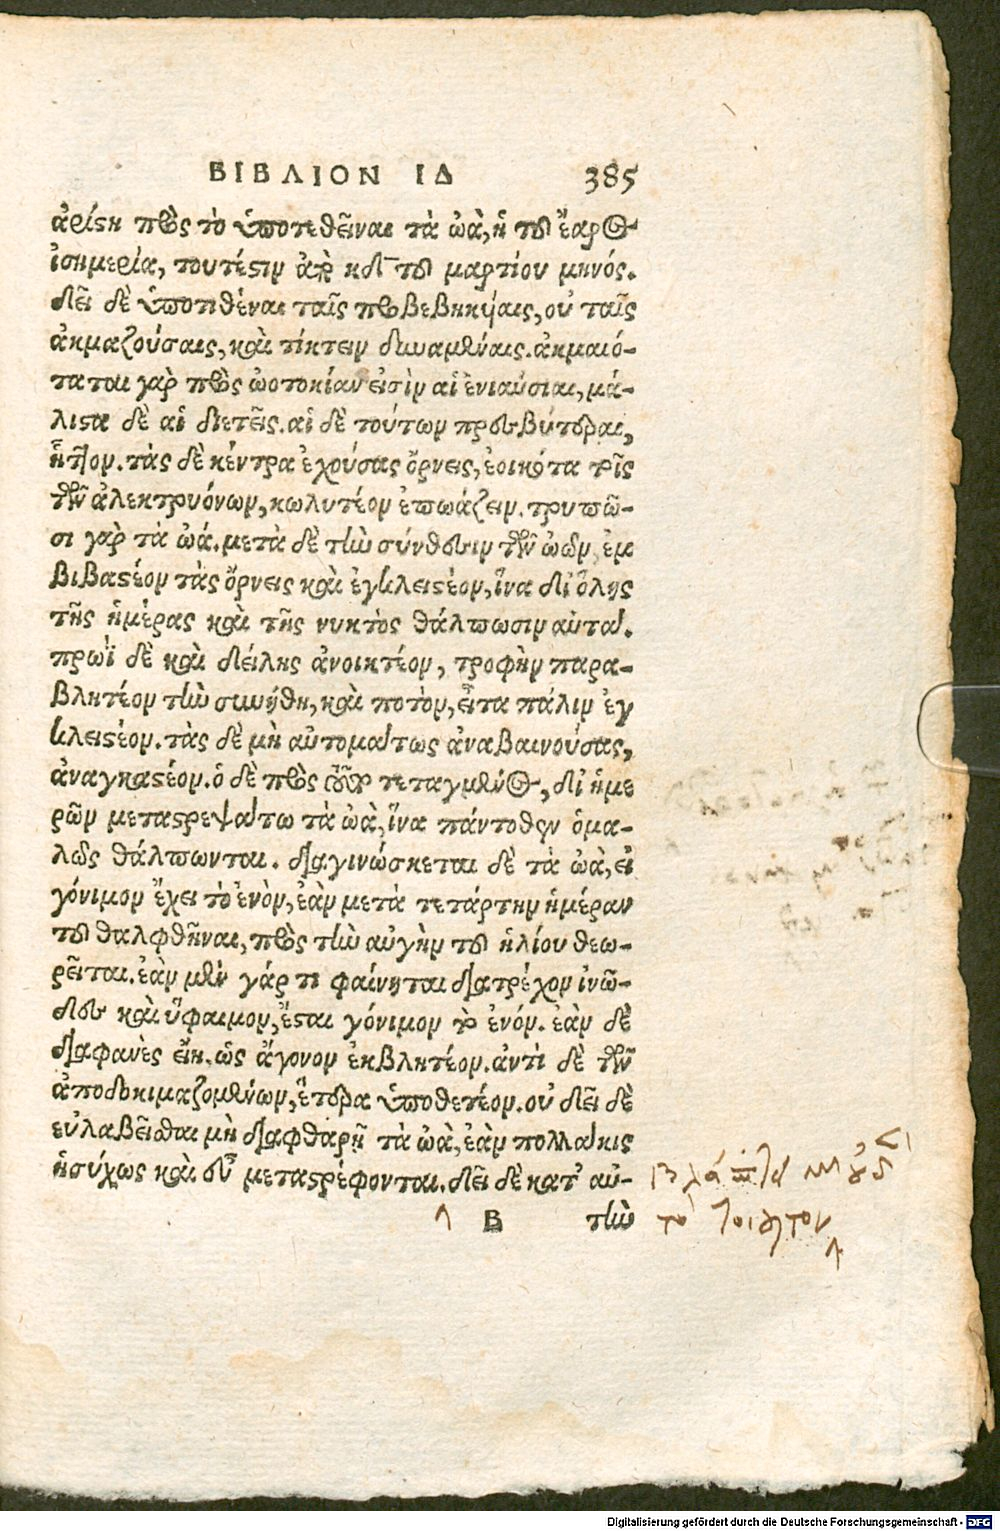 ΒΙΒΛΙΟΝ ΙΔ 385
ἀρίστη πρὸς τὸ ὑποτεθεῖναι τὰ ὠὰ, ἡ τοῦ ἔαρος
ἰσημερία, τουτέστιν ἀπὸ κδ τοῦ μαρτίου μηνός.
δεῖ δὲ ὑποτιθέναι ταῖς προβεβηκυίαις, οὐ ταῖς
ἀκμαζούσαις, καὶ τίκτειν δυναμέναις. ἀκμαιό-
ταται γὰρ πρὸς ὠοτοκίαν εἰσὶν αἱ ἐνιαύσιαι, μά-
λιστα δὲ αἱ διετεῖς. αἱ δὲ τούτων πρεσβύτεραι,
ἧττον. τὰς δὲ κέντρα ἐχούσας ὄρνεις, ἐοικότα τοῖς
τῶν ἀλεκτρυόνων, κωλυτέον ἐπωάζειν. τρυπῶ-
σι γὰρ τὰ ὠά. μετὰ δὲ τὴν σύνθεσιν τῶν ὠῶν, ἐμ
βιβαστέον τὰς ὄρνεις καὶ ἐγκλειστέον, ἵνα δι' ὅλης
τῆς ἡμέρας καὶ τῆς νυκτὸς θάλπωσιν αὐτά.
πρωῒ δὲ καὶ δείλης ἀνοικτέον, τροφὴν παρα-
βλητέον τὴν συνήθη, καὶ ποτὸν, εἶτα πάλιν ἐγ
κλειστέον. τὰς δὲ μὴ αὐτομάτως ἀναβαινούσας,
ἀναγκαστέον. ὁ δὲ πρὸς τοῦτο τεταγμένος, δι' ἡμε
ρῶν μεταστρεψάτω τὰ ὠὰ, ἵνα πάντοθεν ὁμα-
λῶς θάλπωνται. διαγινώσκεται δὲ τὰ ὠὰ, εἰ
γόνιμον ἔχει τὸ ἐνὸν, ἐὰν μετὰ τετάρτην ἡμέραν
τοῦ θαλφθῆναι, πρὸς τὴν αὐγὴν τοῦ ἡλίου θεω-
ρεῖται. ἐὰν μὲν γάρ τι φαίνηται διατρέχον ἰνῶ-
δες καὶ ὕφαιμον, ἔσται γόνιμον τὸ ἐνόν. ἐὰν δὲ
διαφανὲς εἴη, ὡς ἄγονον ἐκβλητέον. ἀντὶ δὲ τῶν
ἀποδοκιμαζομένων, ἕτερα ὑποθετέον. οὐ δεῖ δὲ
εὐλαβεῖσθαι μὴ διαφθαρῇ τὰ ὠὰ, ἐὰν πολλάκις
ἡσύχως καὶ εὖ μεταστρέφονται. δεῖ δὲ κατ' αὐ-
B τὴν